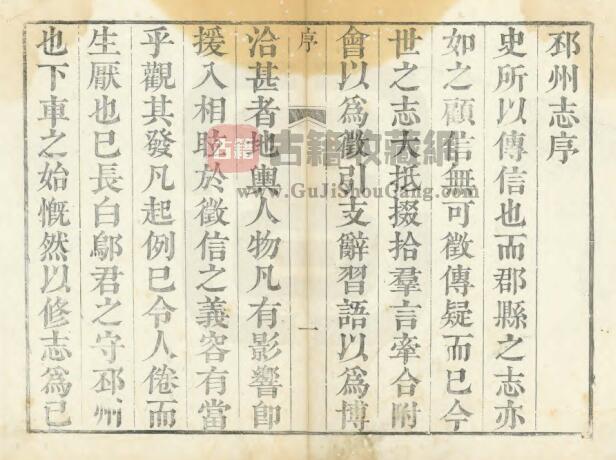 邳州志序
史所以傳信也而郡縣之志亦
如之顧信無可徵傳疑而已今
世之志大抵掇拾羣言牽合附
會以爲徵引支辭習語以爲博
序
一
洽甚者地輿人物凡有影響卽
援入相助於徵信之義容有當
乎觀其發凡起例已令人倦而
生厭也已長白鄔君之守邳州
也下車之始慨然以修志爲已
古籍
古籍收藏網
www.GuJiShouCang.com